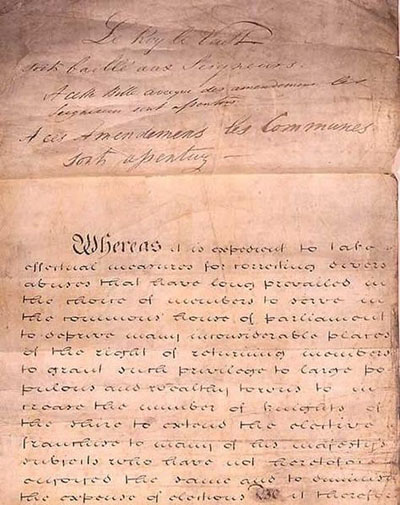 Le Roy le Veult
soit baillé aux Seigneurs.
A ceste Bille avecque des amendemens les
Seigneurs sont assentus.
A ces Amendemens les Communes
sont assentuz
Whereas it is expedient to take
effectual measures for correcting divers
abuses that have long prevailed in
the choice of members to serve in
the commons house of parliament
to deprive many inconsiderable places
of the right of returning members
to grant such privilege to large po-
pulous and wealthy towns to in
crease the number of knights of
the shire to extend the elective
franchise to many of his majesty's
subjects who have not heretofore
enjoyed the same and to diminish
the expense of elections Be it therefore